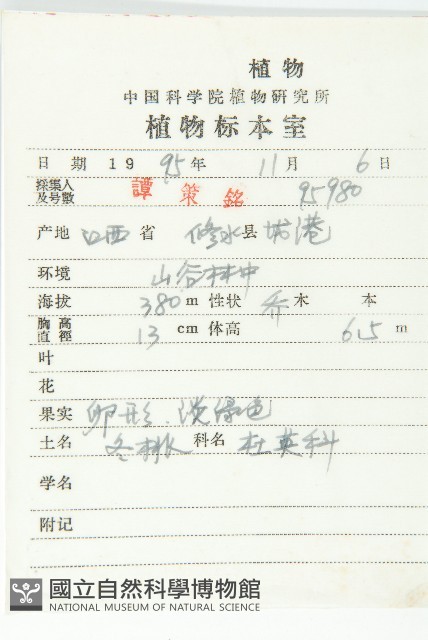 植物
中国科学院植物研究所
植物标本室
日 期 1995年 11月 6日
採集人及号数 譚 策 銘 95980
产地 江西省 修水县 港
环境 山谷林中
海拔 380 m 性状 乔木 本
胸高直徑 13 cm 体高 6.5 m
叶
花
果实 卵形. 淡绿色
土名 冬桃 科名 杜英科
学名
附记
國立自然科學博物館
NATIONAL MUSEUM OF NATURAL SCIENCE